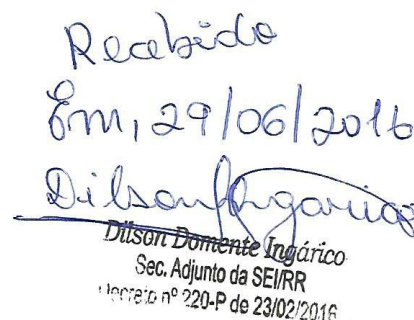 Recebido
Em, 29/06/2016
Dilson Ingarico
Dilson Domente Ingárico
Sec. Adjunto da SEI/RR
Decreto nº 220-P de 23/02/2016